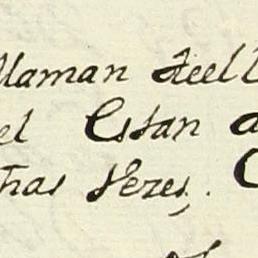 llaman deell
el Estan a
has vezes. C